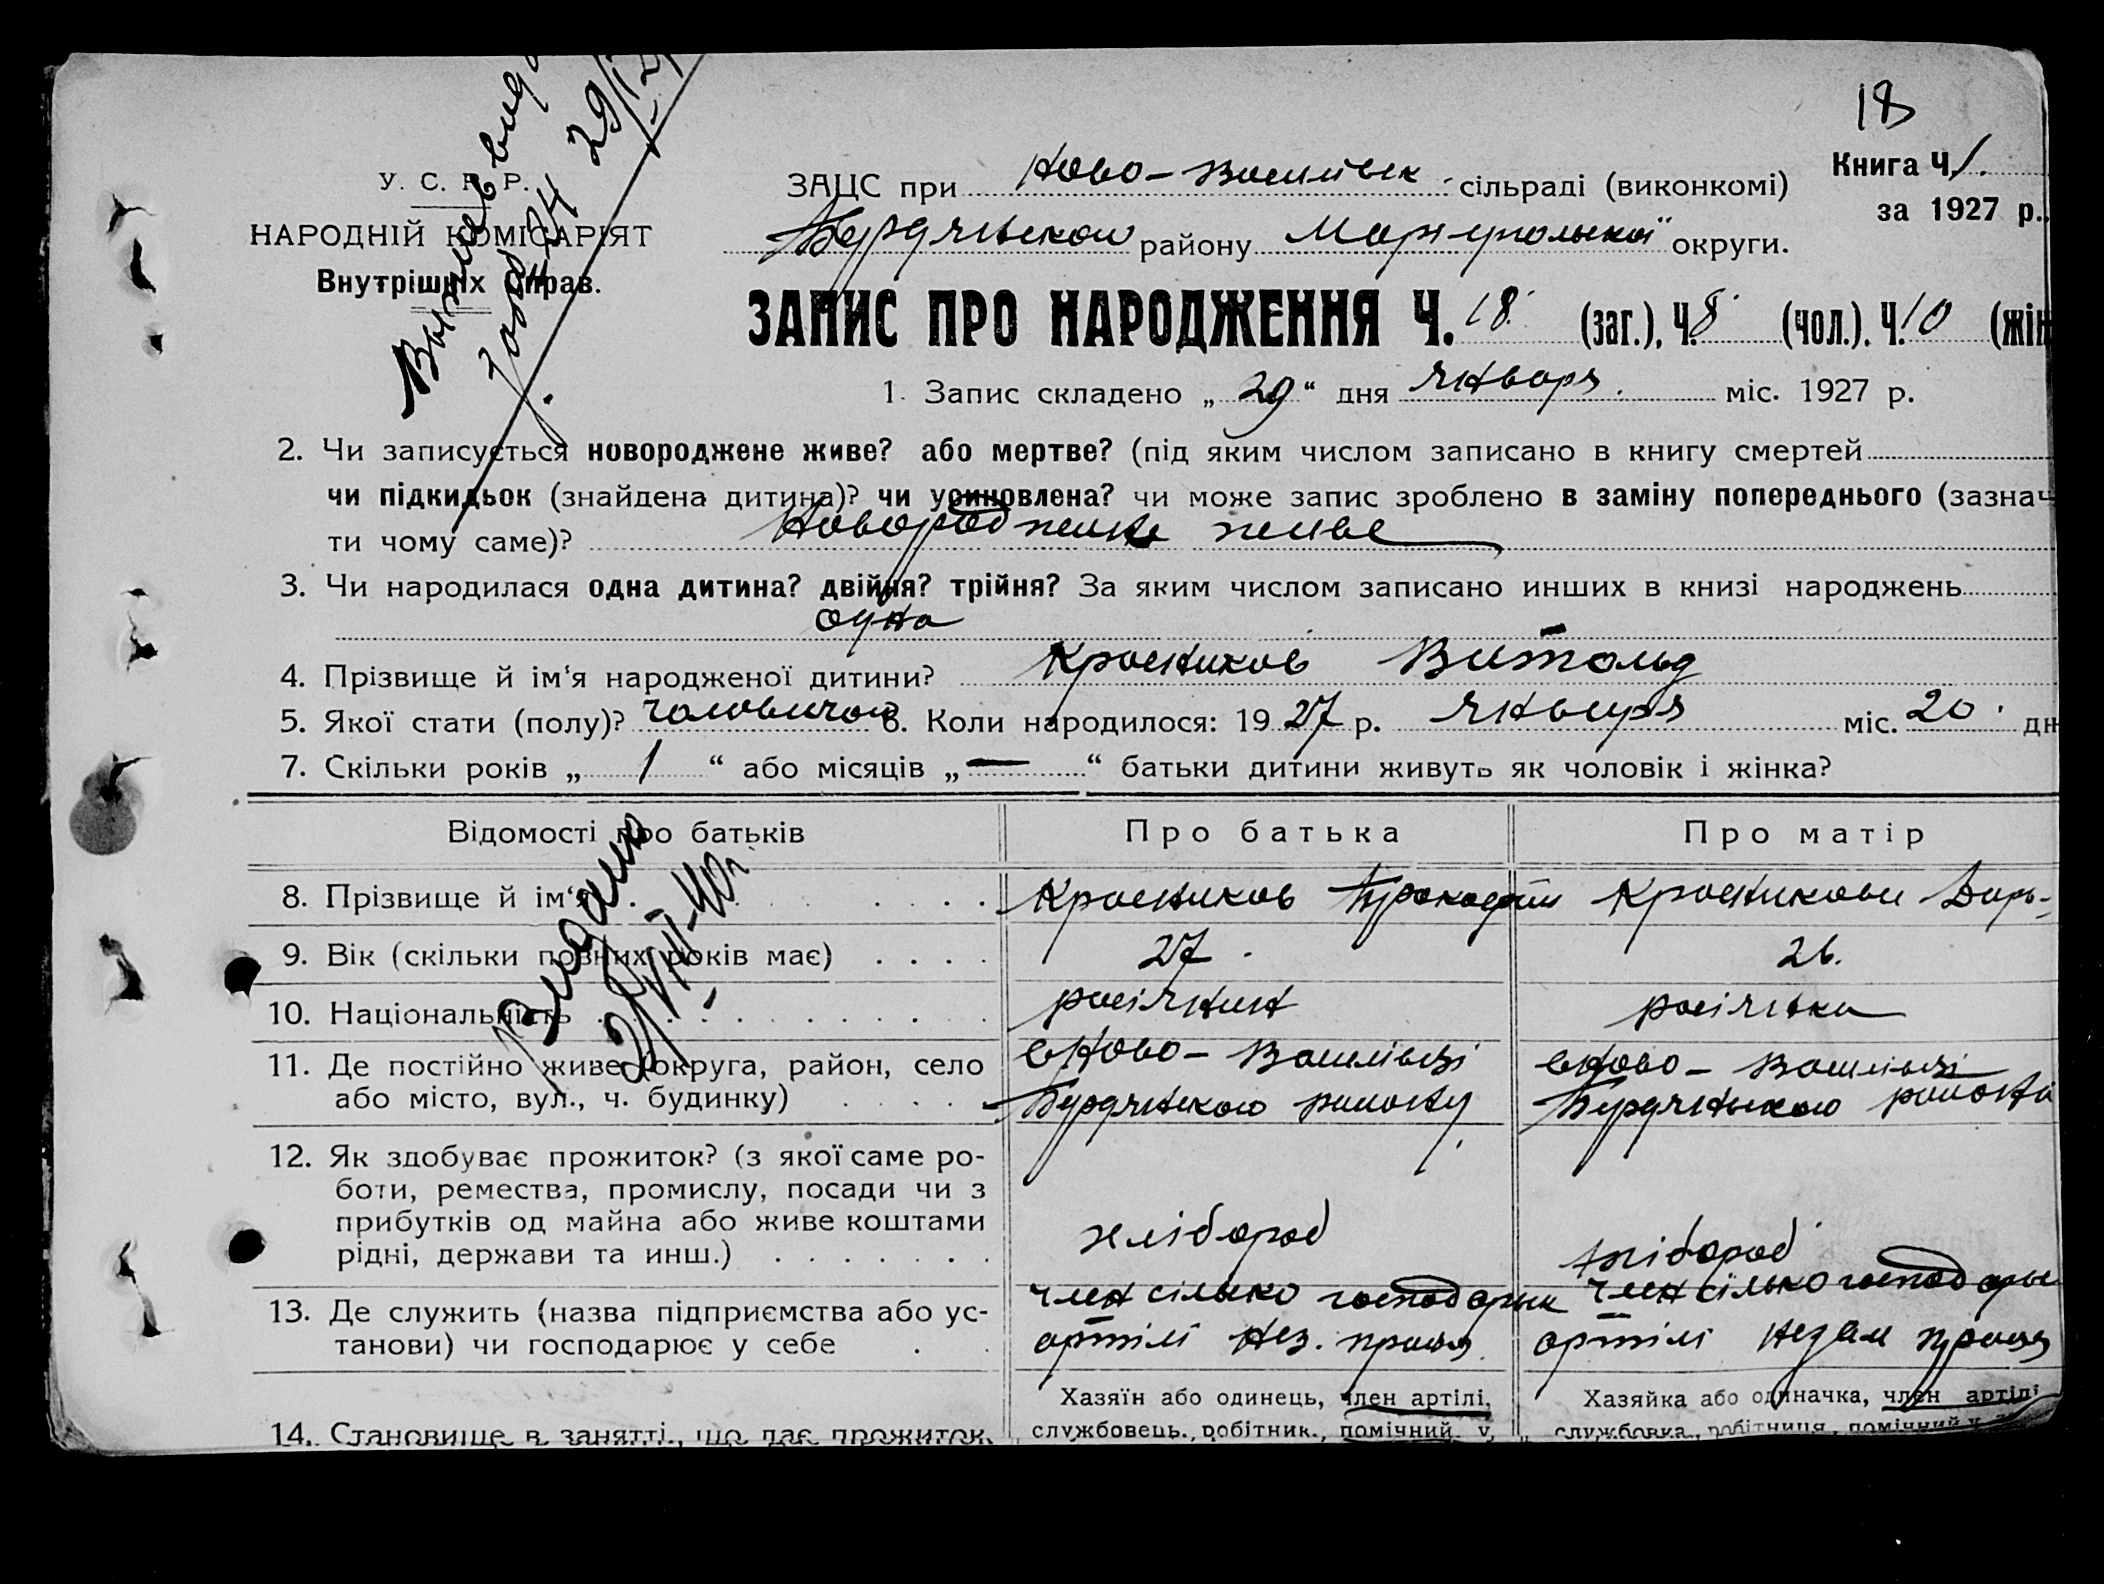 18
У. С. Р. Р.
НАРОДНІЙ КОМІСАРІЯТ
Внутрішніх Справ.
ЗАЦС при Ново-Василівск. сільраді (виконкомі)
Книга Ч 1.
за 1927 р.
Бердянськои району Мариупольскої округи.
ЗАПИС ПРО НАРОДЖЕННЯ Ч. 18. (заг.), Ч. 8 (чол.). Ч. 10 (жін
1. Запис складено „ 29 “ дня Января. міс. 1927 р.
2. Чи записується новороджене живе? або мертве? (під яким числом записано в книгу смертей
чи підкидьок (знайдена дитина)? чи усиновлена? чи може запис зроблено в заміну попереднього (зазнач
ти чому саме)? живе
3. Чи народилася одна дитина? двійня? трійня? За яким числом записано инших в книзі народжень
одна
4. Прізвище й ім‘я народженої дитини? Красников Витольд
5. Якої стати (полу)? 6. Коли народилося: 19 27 р. Января міс. 20. дн
7. Скільки років „ 1 “ або місяців „ — “ батьки дитини живуть як чоловік і жінка?
Відомості про батьків
Про батька
Про матір
8. Прізвище й ім‘я
Красников
Красникова
9. Вік (скільки повних років має)
27.
26.
10. Національність
росіянин
росіянка
11. Де постійно живе (округа, район, село
або місто, вул., ч. будинку)
в Ново-Василівці
Бердянского району
в Ново-Василівці
Бердянского
12. Як здобуває прожиток? (з якої саме ро-
боти, ремества, промислу, посади чи з
прибутків од майна або живе коштами
рідні, держави та инш.)
хлібороб
хлібороб
13. Де служить (назва підприємства або ус-
танови) чи господарює у себе
член сілько
артілі Нез. праця
член сілько
артілі Незам праця
14. Становище в занятті, що дає прожиток
Хазяїн або одинець, член артілі,
службовець, робітник, помічний у
Хазяйка або одиначка, член артілі
службовка, робітниця, помічний у
Видано